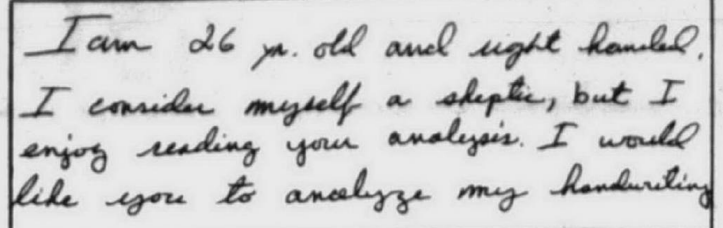 I am 26 yr. old and right handed.
I consider myself a skeptic, but I
enjoy reading your analysis. I would
like you to analyze my handwriting